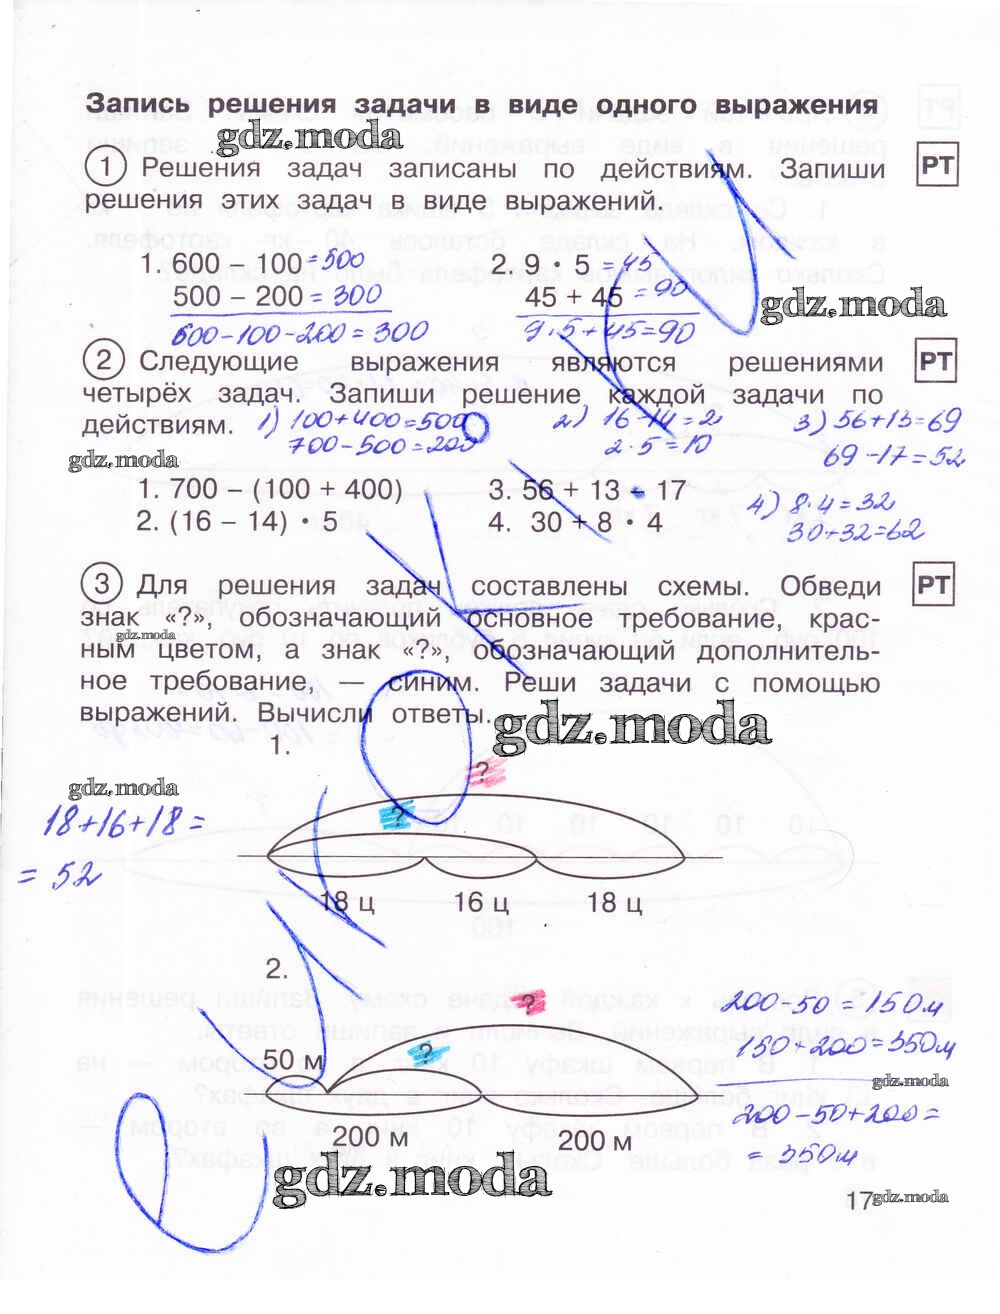 Запись решения задачи в виде одного выражения
gdz.moda
1 Решения задач записаны по действиям. Запиши РТ
решения этих задач в виде выражений.
1. 600 – 100 = 500 2. 9 · 5 = 45
500 – 200 = 300 45 + 45 = 90
gdz.moda
600-100-200=300 9·5+45=90
2 Следующие выражения являются решениями РТ
четырёх задач. Запиши решение каждой задачи по
действиям. 1) 100+400=500 2) 16-14=2 3) 56+13=69
700-500=200 2·5=10 69-17=52
gdz.moda
1. 700 – (100 + 400) 3. 56 + 13 – 17
2. (16 – 14) · 5 4. 30 + 8 · 4
4) 8·4=32
30+32=62
3 Для решения задач составлены схемы. Обведи РТ
знак «?», обозначающий основное требование, крас-
gdz.moda
ным цветом, а знак «?», обозначающий дополнитель-
ное требование, — синим. Реши задачи с помощью
выражений. Вычисли ответы.
gdz.moda
1.
?
gdz.moda
?
18+16+18=
= 52
18 ц 16 ц 18 ц
2.
? 200-50=150м
50 м ? 150+200=350м
gdz.moda
200-50+200=
200 м 200 м
= 350м
gdz.moda
17
gdz.moda